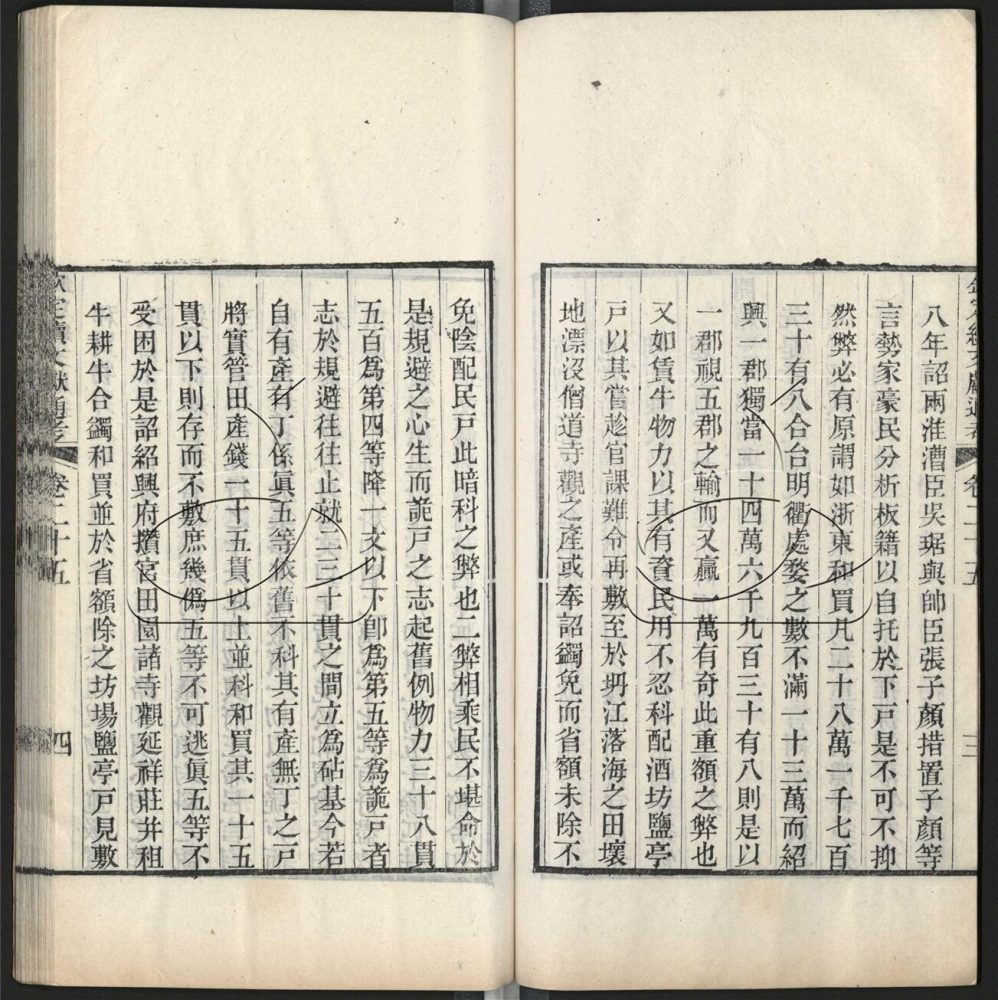 欽定續文獻通考 卷二十五 三
八年詔兩淮漕臣吳琚與帥臣張子顏措置子顏等
言勢家豪民分析板籍以自托於下戸是不可不抑
然弊必有原謂如浙東和買凡二十八萬一千七百
三十有八合台明衢處婺之數不滿一十三萬而紹
興一郡獨當一十四萬六千九百三十有八則是以
一郡視五郡之輸而又贏一萬有奇此重額之弊也
又如賃牛物力以其有資民用不忍科配酒坊鹽亭
戸以其嘗趁官課難令再敷至於坍江落海之田壤
地漂沒僧道寺觀之產或奉詔蠲免而省額未除不
免陰配民戸此暗科之弊也二弊相乘民不堪命於
是規避之心生而詭戸之志起舊例物力三十八貫
五百爲第四等降一文以下卽爲第五等爲詭戸者
志於規避往往止就二三十貫之間立爲砧基今若
自有產有丁係眞五等依舊不科其有產無丁之戸
將實管田產錢一十五貫以上並科和買其一十五
貫以下則存而不敷庶幾僞五等不可逃眞五等不
受困於是詔紹興府攢宮田園諸寺觀延祥莊并租
牛耕牛合蠲和買並於省額除之坊場鹽亭戸見敷
欽定續文獻通考 卷二十五 四